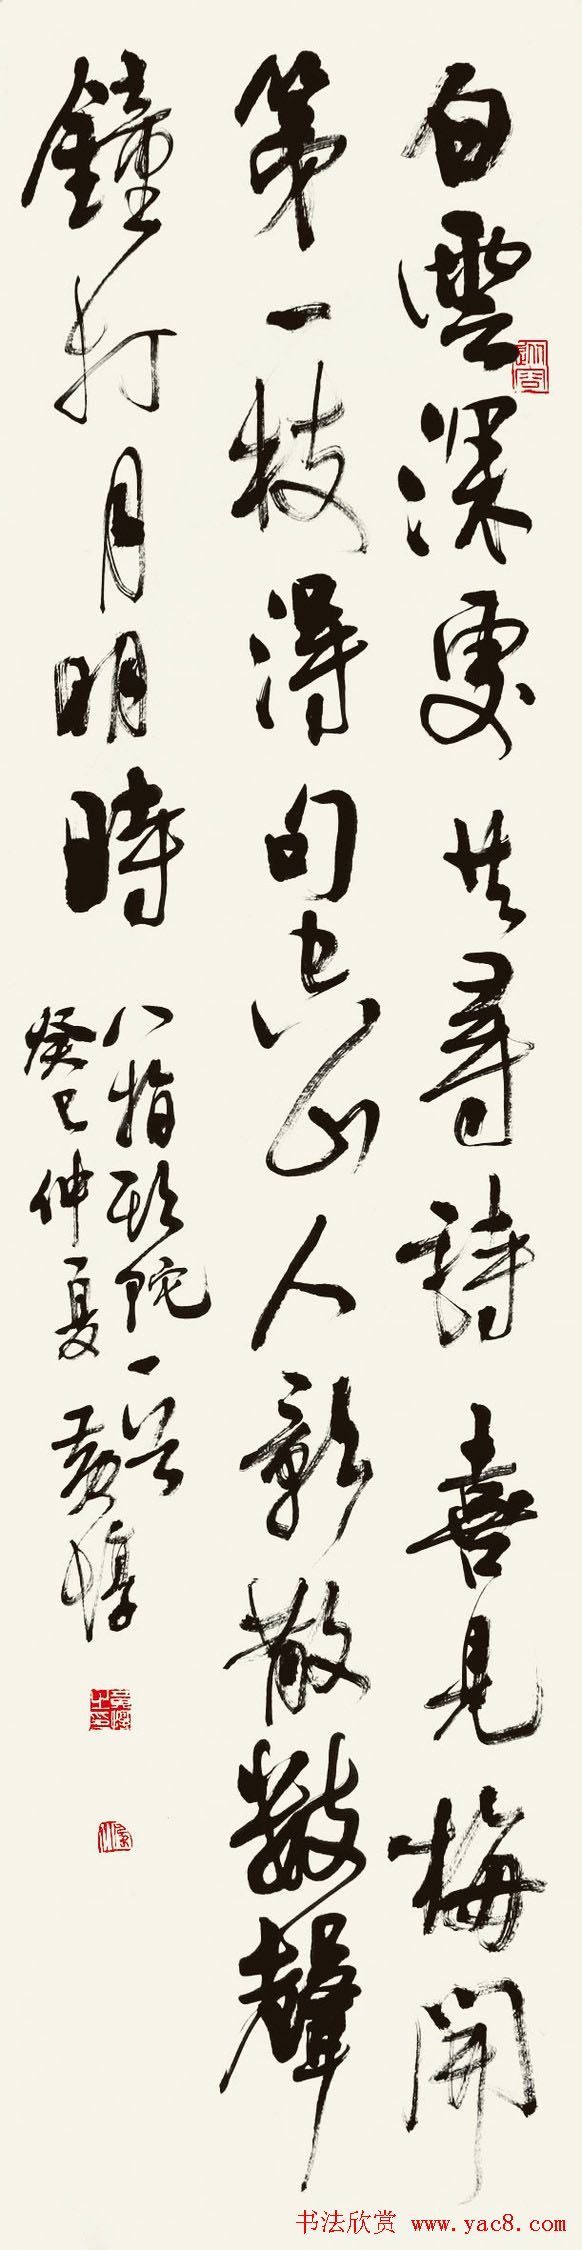 白雲深處共尋詩喜見梅開
第一枝得句空山人影散數聲
鐘打月明時
八指頭陀一首
癸巳仲夏黃惇
黃惇之印
书法欣赏 www.yac8.com